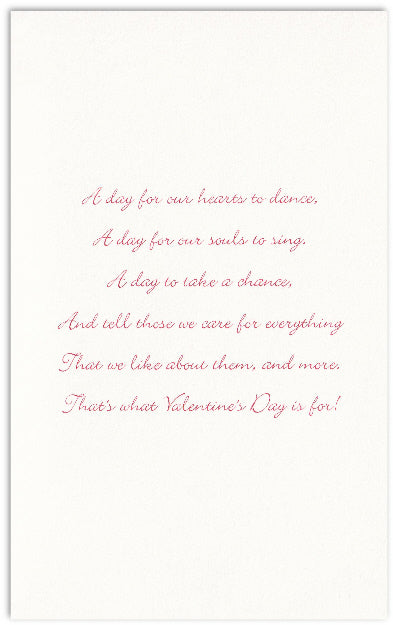 A day for our hearts to dance,
A day for our souls to sing.
A day to take a chance,
And tell those we care for everything
That we like about them, and more.
That's what Valentine's Day is for!